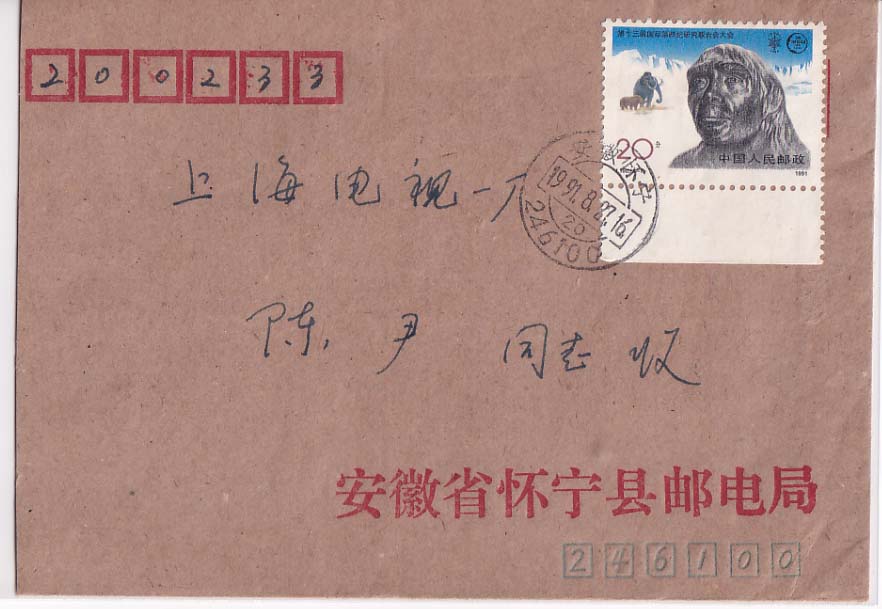 200233
第十三届国际第四纪研究联合会大会
20分
中国人民邮政
1991
安徽怀宁
1991.8.27.16
246100
上海电视一厂
陈尹 同志收
安徽省怀宁县邮电局
246100